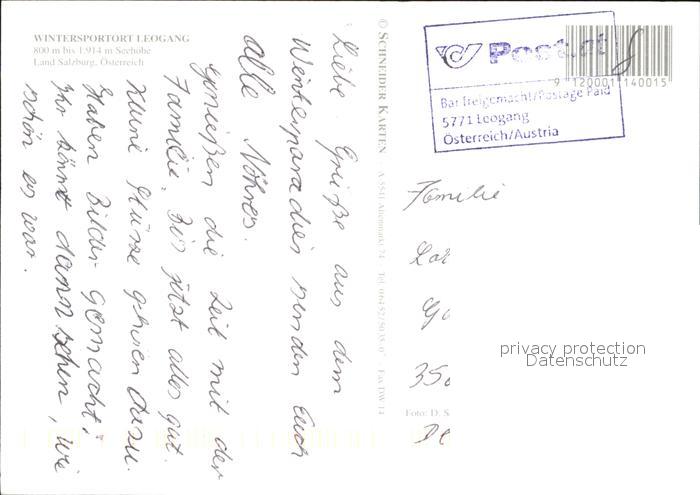 WINTERSPORTORT LEOGANG
800 m bis 1.914 m Seehöhe
Land Salzburg, Österreich
Liebe Grüße aus dem
Winterparadies senden Euch
alle Nöhres.
genießen die Zeit mit der
Familie. Bis jetzt alles gut.
Kleine Stürze gehören dazu.
Haben Bilder gemacht!
Ihr könnt dann sehen, wie
schön es war.
© SCHNEIDER KARTEN A-5541 Altenmarkt 74 Tel. 0 64 52/50 35-0 Fax DW 14
Post.at
9 120001 140015
Bar freigemacht/Postage Paid
5771 Leogang
Österreich/Austria
Familie
privacy protection
Datenschutz
Foto: D. S